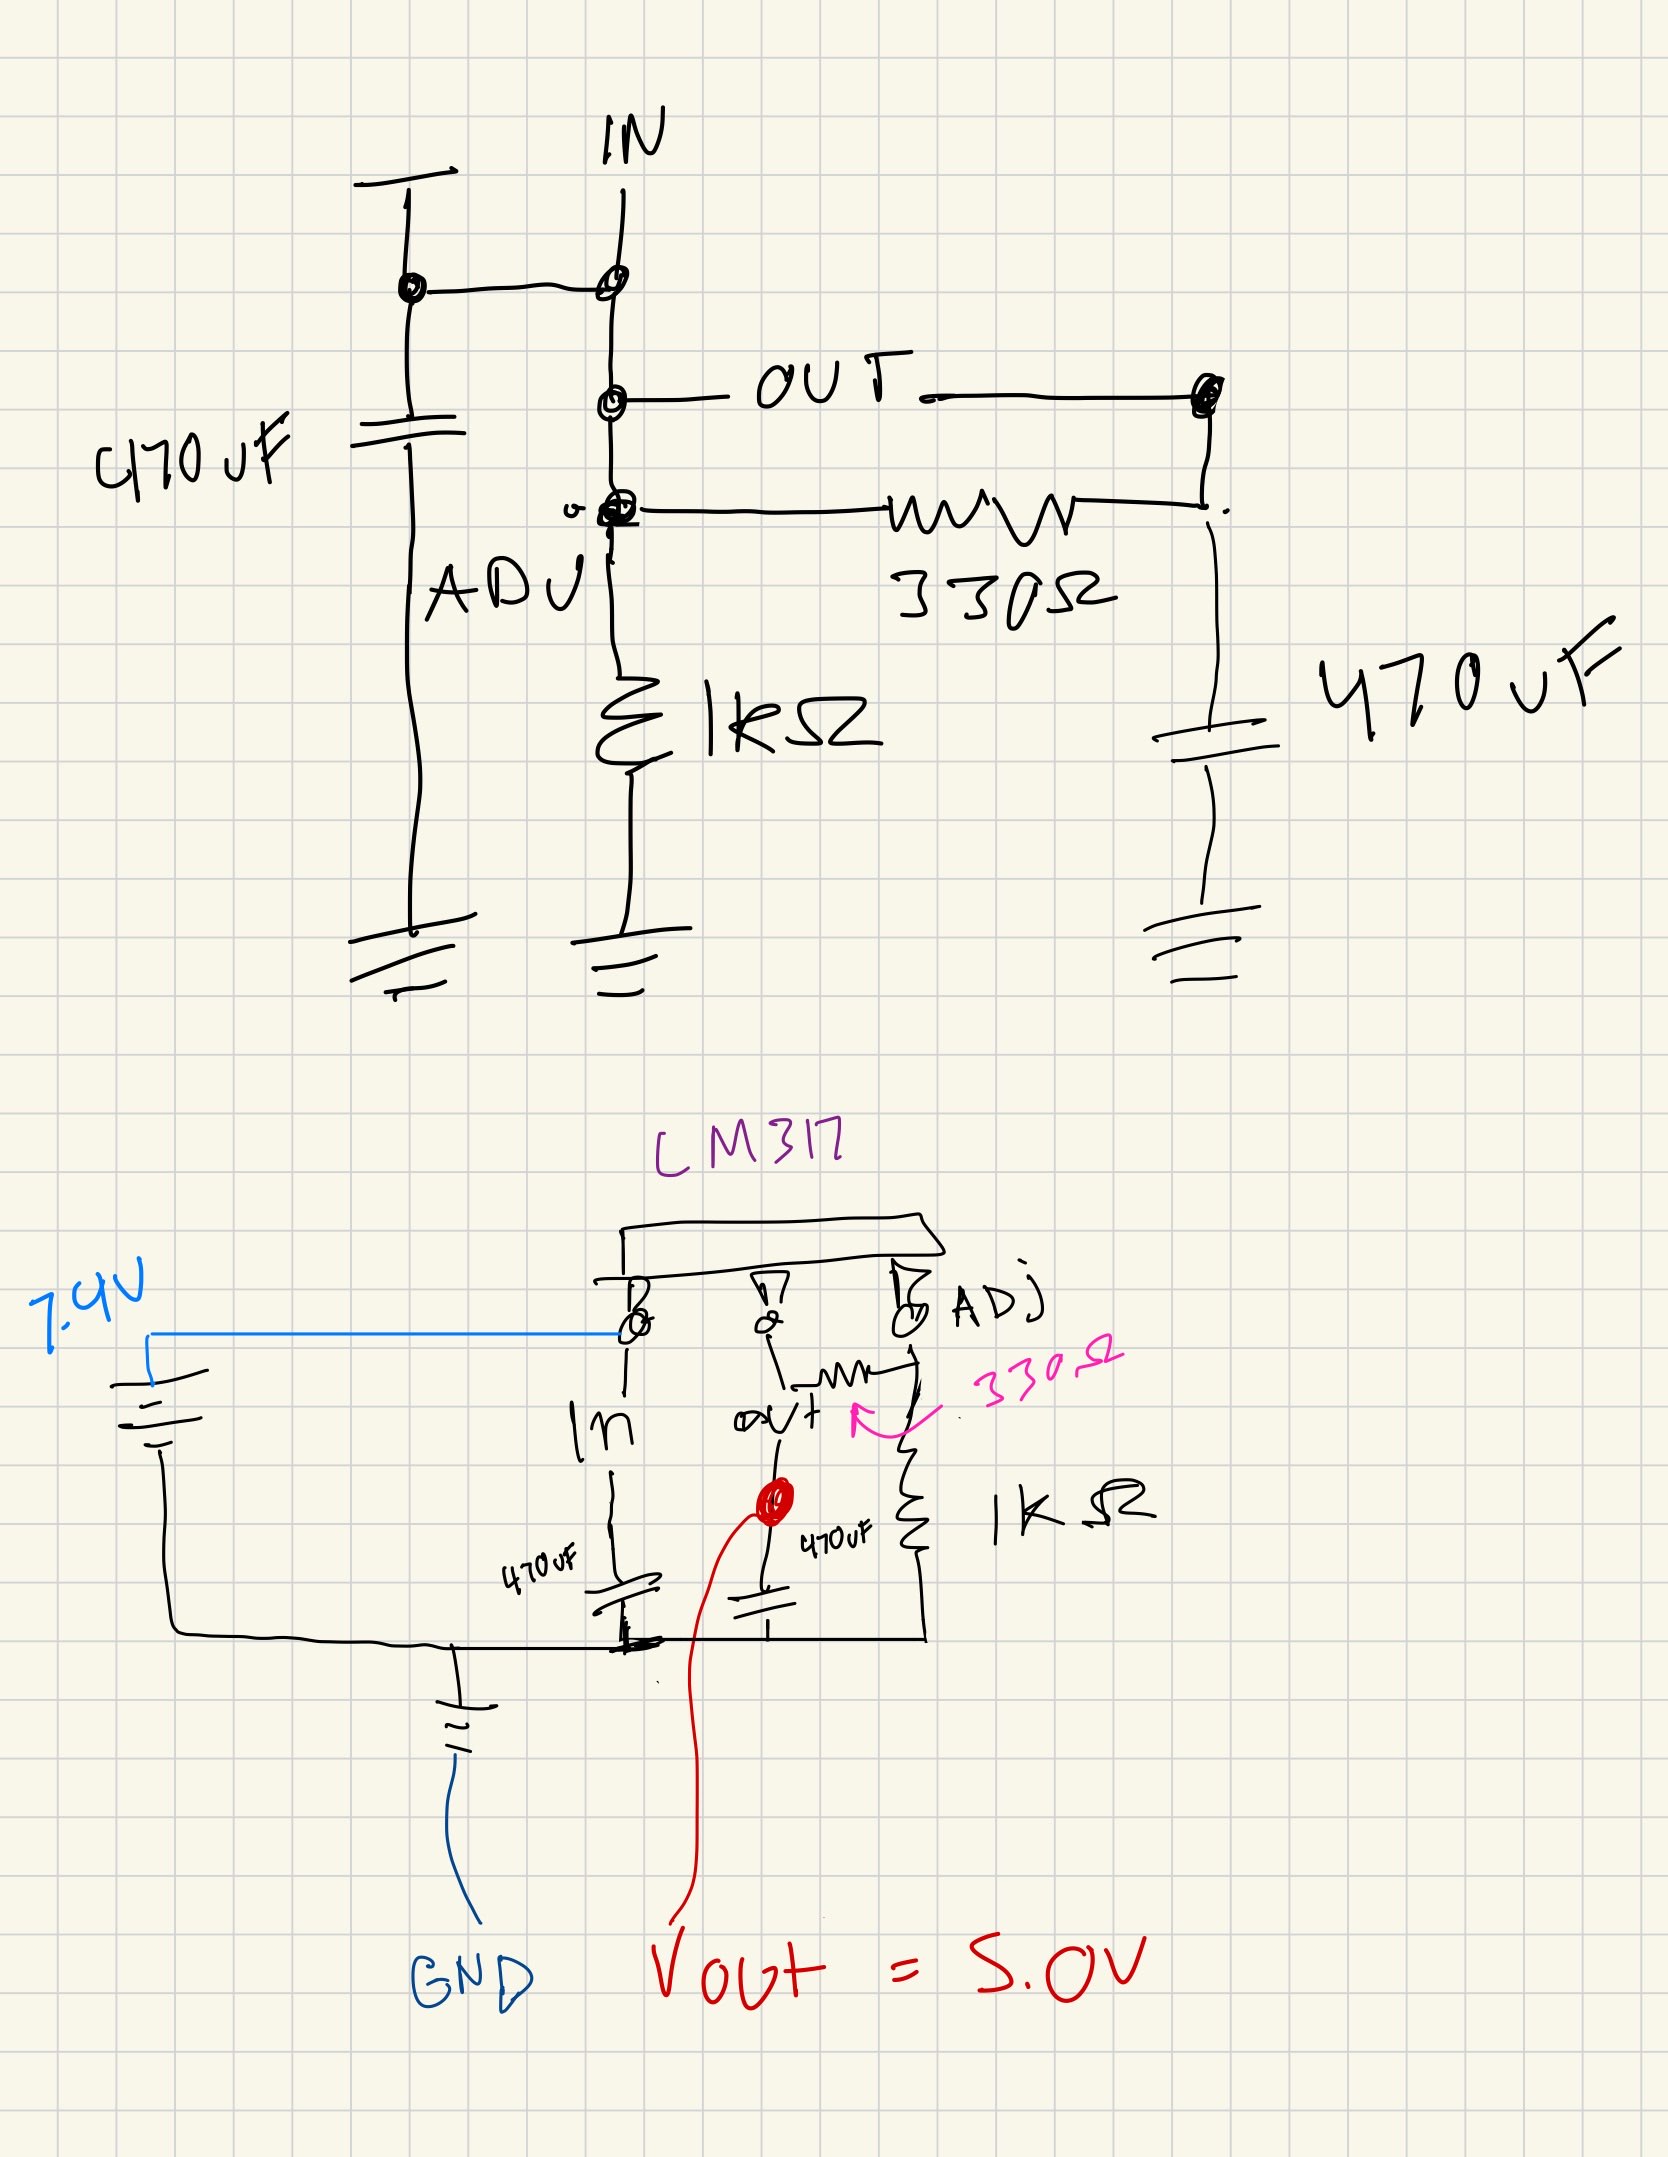 IN
OUT
470uF
ADJ
330Ω
1kΩ
470uF
LM317
7.4V
ADj
330Ω
In
out
1KΩ
470uF
470uF
GND
Vout = 5.0V